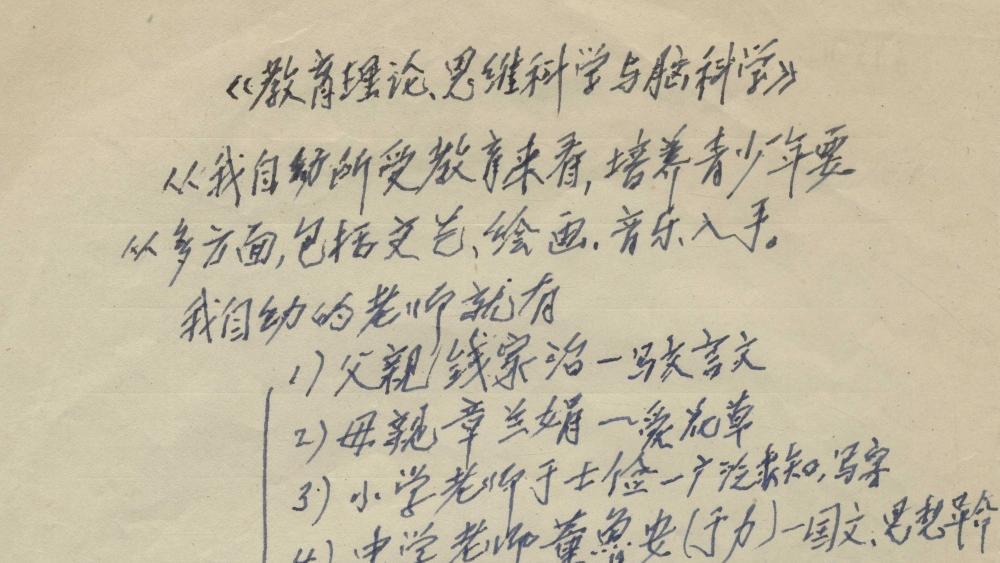 《教育理论、思维科学与脑科学》
从我自幼所受教育来看,培养青少年要
从多方面,包括文艺、绘画、音乐入手。
我自幼的老师就有
1)父親钱家治—写文言文
2)母親章兰娟—爱花草
3)小学老师于士俭—广泛求知,写字
4)中学老师董鱼安(于力)—国文、思想革命